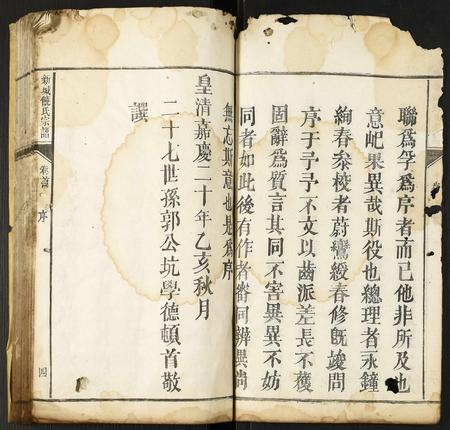 聯為孚為序者而已他非所及也
意屺果異哉斯役也總理者永鐘
絢春叅校者蔚鸞綬春修既竣問
序于予予不文以齒派差長不獲
固辭為質言其同不害異異不妨
同者如此後有作者審同辨異尚
無忘斯意也是為序
皇清嘉慶二十年乙亥秋月
二十七世孫郭公坑學德頓首敬
譔
新城饒氏宗譜
卷首
序
四